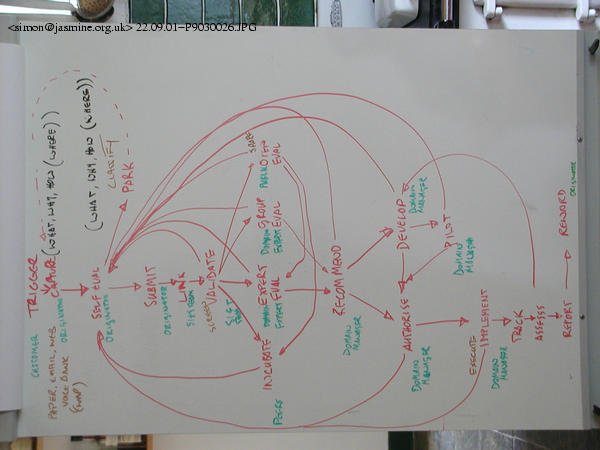 <simon@jasmine.org.uk> 22.09.01-P9030026.JPG
CUSTOMER
TRIGGER
PAPER, EMAIL, WEB
VOICE BANK
(WAP)
CAPTURE (WHAT, WHY, HOW (WHERE))
ORIGINATOR
(WHAT, WHY, HOW (WHERE))
CLASSIFY
SELF EVAL
ORIGINATOR
PARK
SUBMIT
ORIGINATOR
LINK
SYSTEM
VALIDATE
INCUBATE
PEERS
EXPERT
EVAL
DOMAIN
EXPERT
GROUP
EVAL
DOMAIN
EXPERT
OPEN
EVAL
PUBLIC
RECOMMEND
DOMAIN
MANAGER
AUTHORISE
DOMAIN
MANAGER
DEVELOP
DOMAIN
MANAGER
PILOT
DOMAIN
MANAGER
EXECUTE
IMPLEMENT
DOMAIN
MANAGER
TRACK
ASSESS
REPORT
REWARD
ORIGINATOR